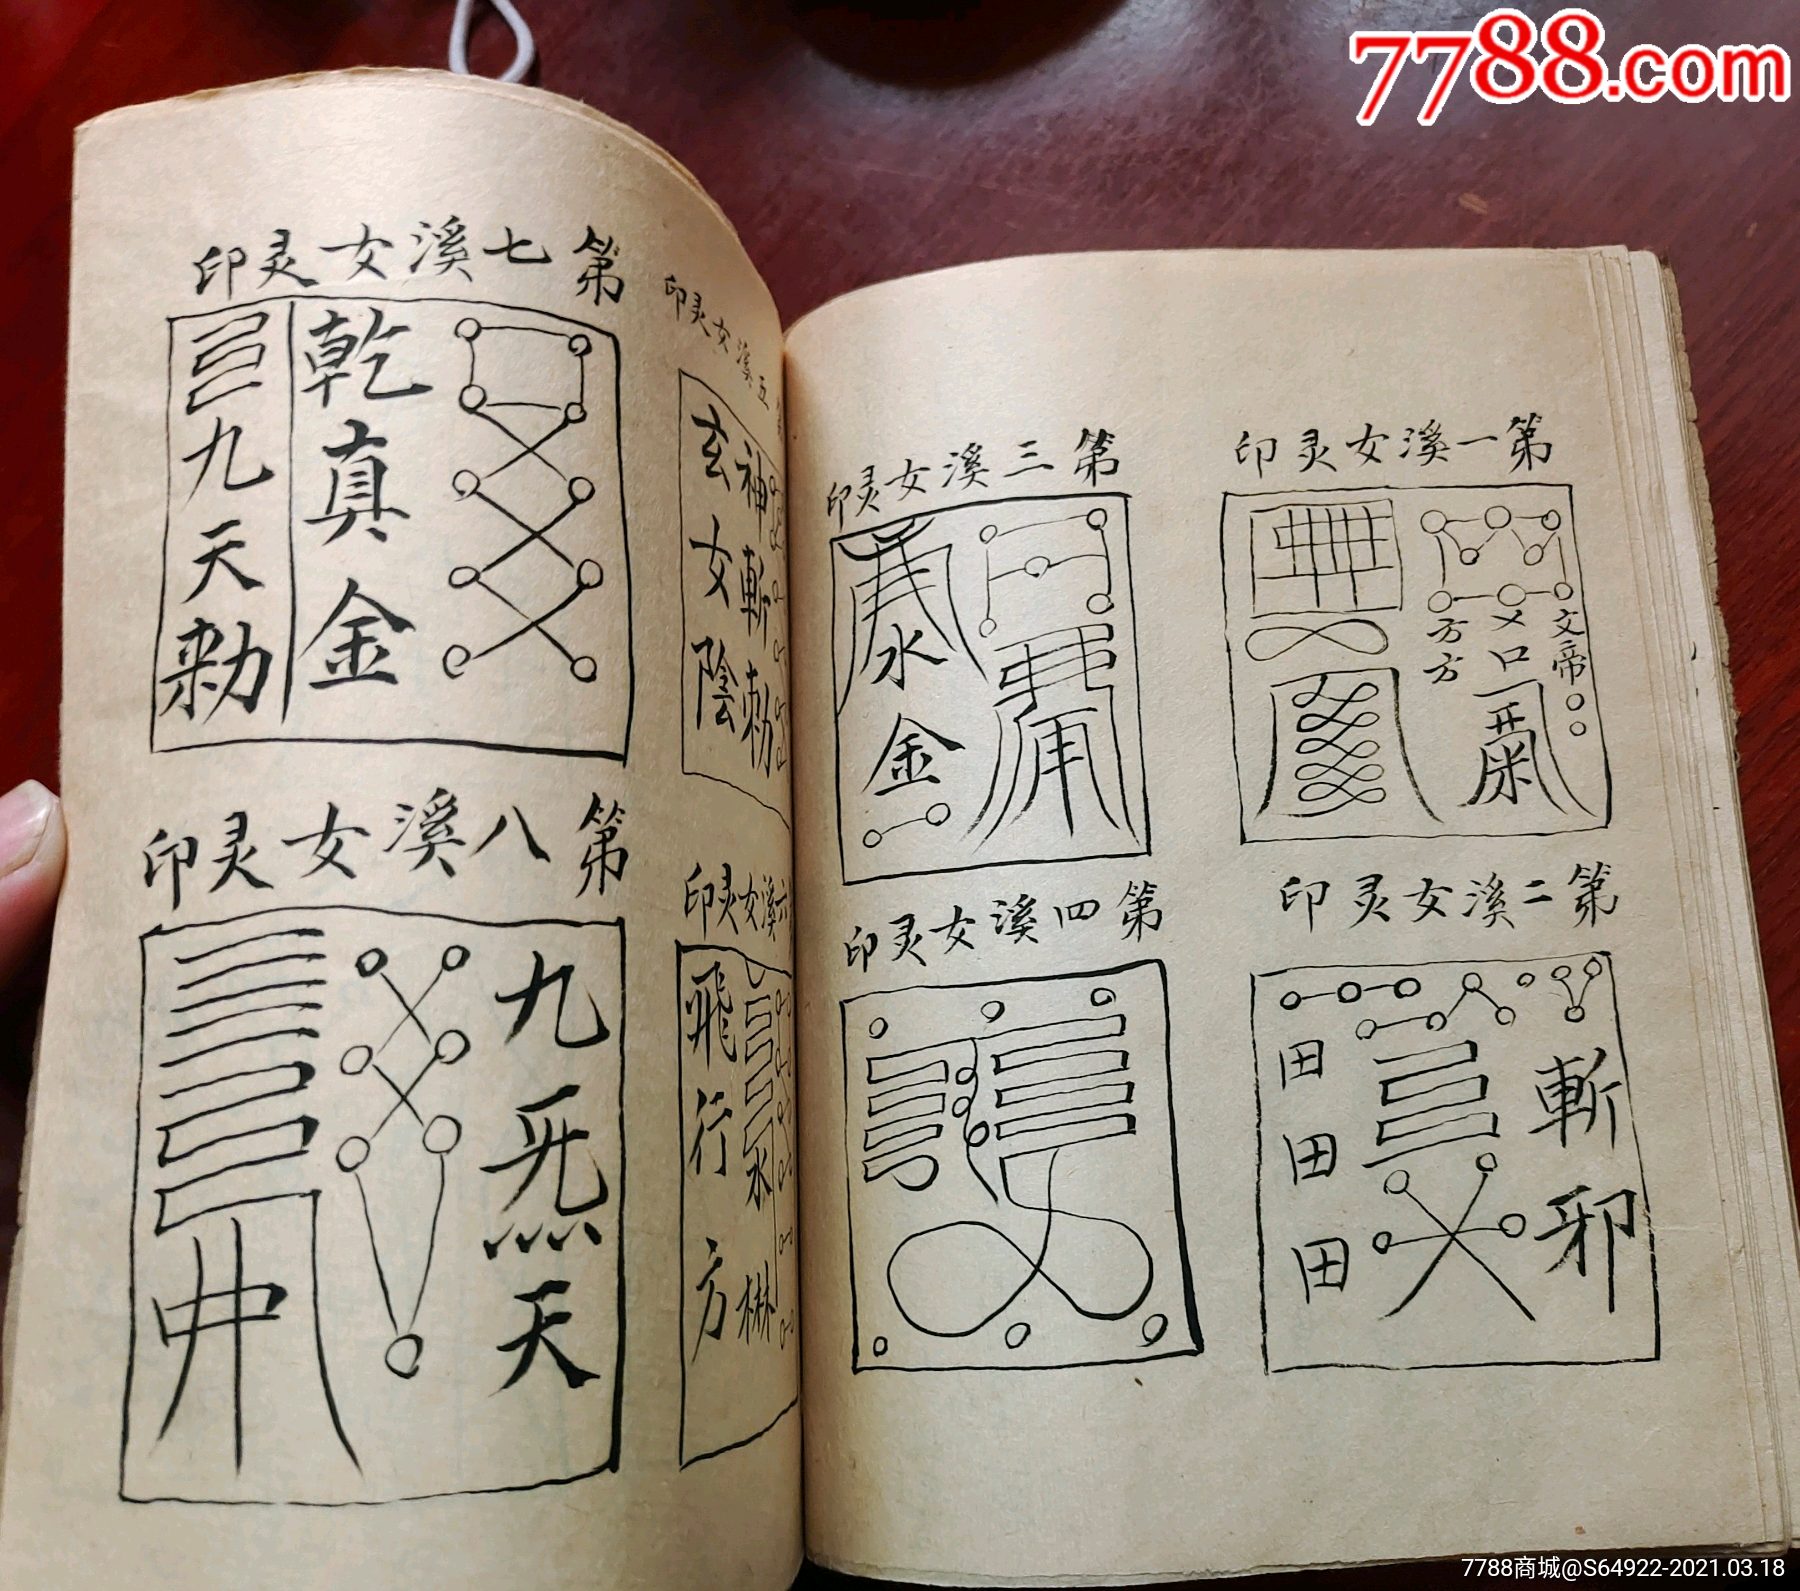 7788.com
第一溪女灵印
文帝
方方
第二溪女灵印
斬邪
田田田
第三溪女灵印
水金
第四溪女灵印
五溪女灵印
神斬勅
玄女陰
六溪女灵印
飛行方
第七溪女灵印
乾真金
九天勑
第八溪女灵印
九炁天
7788商城@S64922-2021.03.18